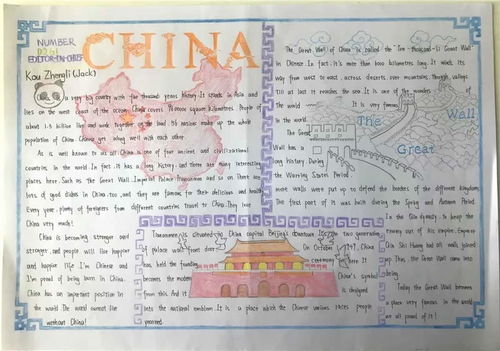 NUMBER
EDITOR-IN-CHIEF
CHINA
Kou Zhengli (Jack)
a very big country with five thousand years history. It stands in Asia and
lies on the west east of the ocean. China covers square kilometres. People of
about 1.3 billion live and work together on the land. 56 nations make up the whole
population of China. Chinese get along well with each other.
As is well known to us all, China is one of four ancient and civilizational
countries in the world. In fact, it has a history, and there are many interesting
places here. Such as the Great Wall, Imperial Palace, Panorama and so on. there are
lots of good dishes in China, too, and they are famous for their delicious and health.
Every year, plenty of foreigners from different countries travel to China. They love
China very much!
China is becoming stronger and
stronger and people will live happier
and happier life. I'm Chinese and
I'm proud of being born in China.
China has an important position in
the world. The world cannot live
without China!
The Great Wall of China is called the "Ten-thousand-li Great Wall"
in Chinese. In fact, it's more than 6000 kilometres long. It winds its
way from west to east, across deserts, over mountains, through valleys
till at last it reaches the sea. It is one of the wonders of
the world. It is very famous in
the world
The Great
Wall has a
long history. During
the Warring States Period
The Great Wall
more walls were put up to defend the borders of the different kingdoms.
The first part of it was built during the Spring and Autumn Period.
In the Qin dynasty, to keep the
enemy out of his empire, Emperor
Qin Shi Huang had all walls joined
up. Thus, the Great Wall came into
being.
Today the Great Wall becomes
a place very famous in the world
we all proud of it!
Tiananmen is situated the China capital Beijing's downtown. Its two generations
of palace west front door. On October 1, 1949, China
has held the founding ceremony here. It
becomes the modern China's symbol
from this. And it is designed
into the national emblem. It is a place which the Chinese various races people
yearned.